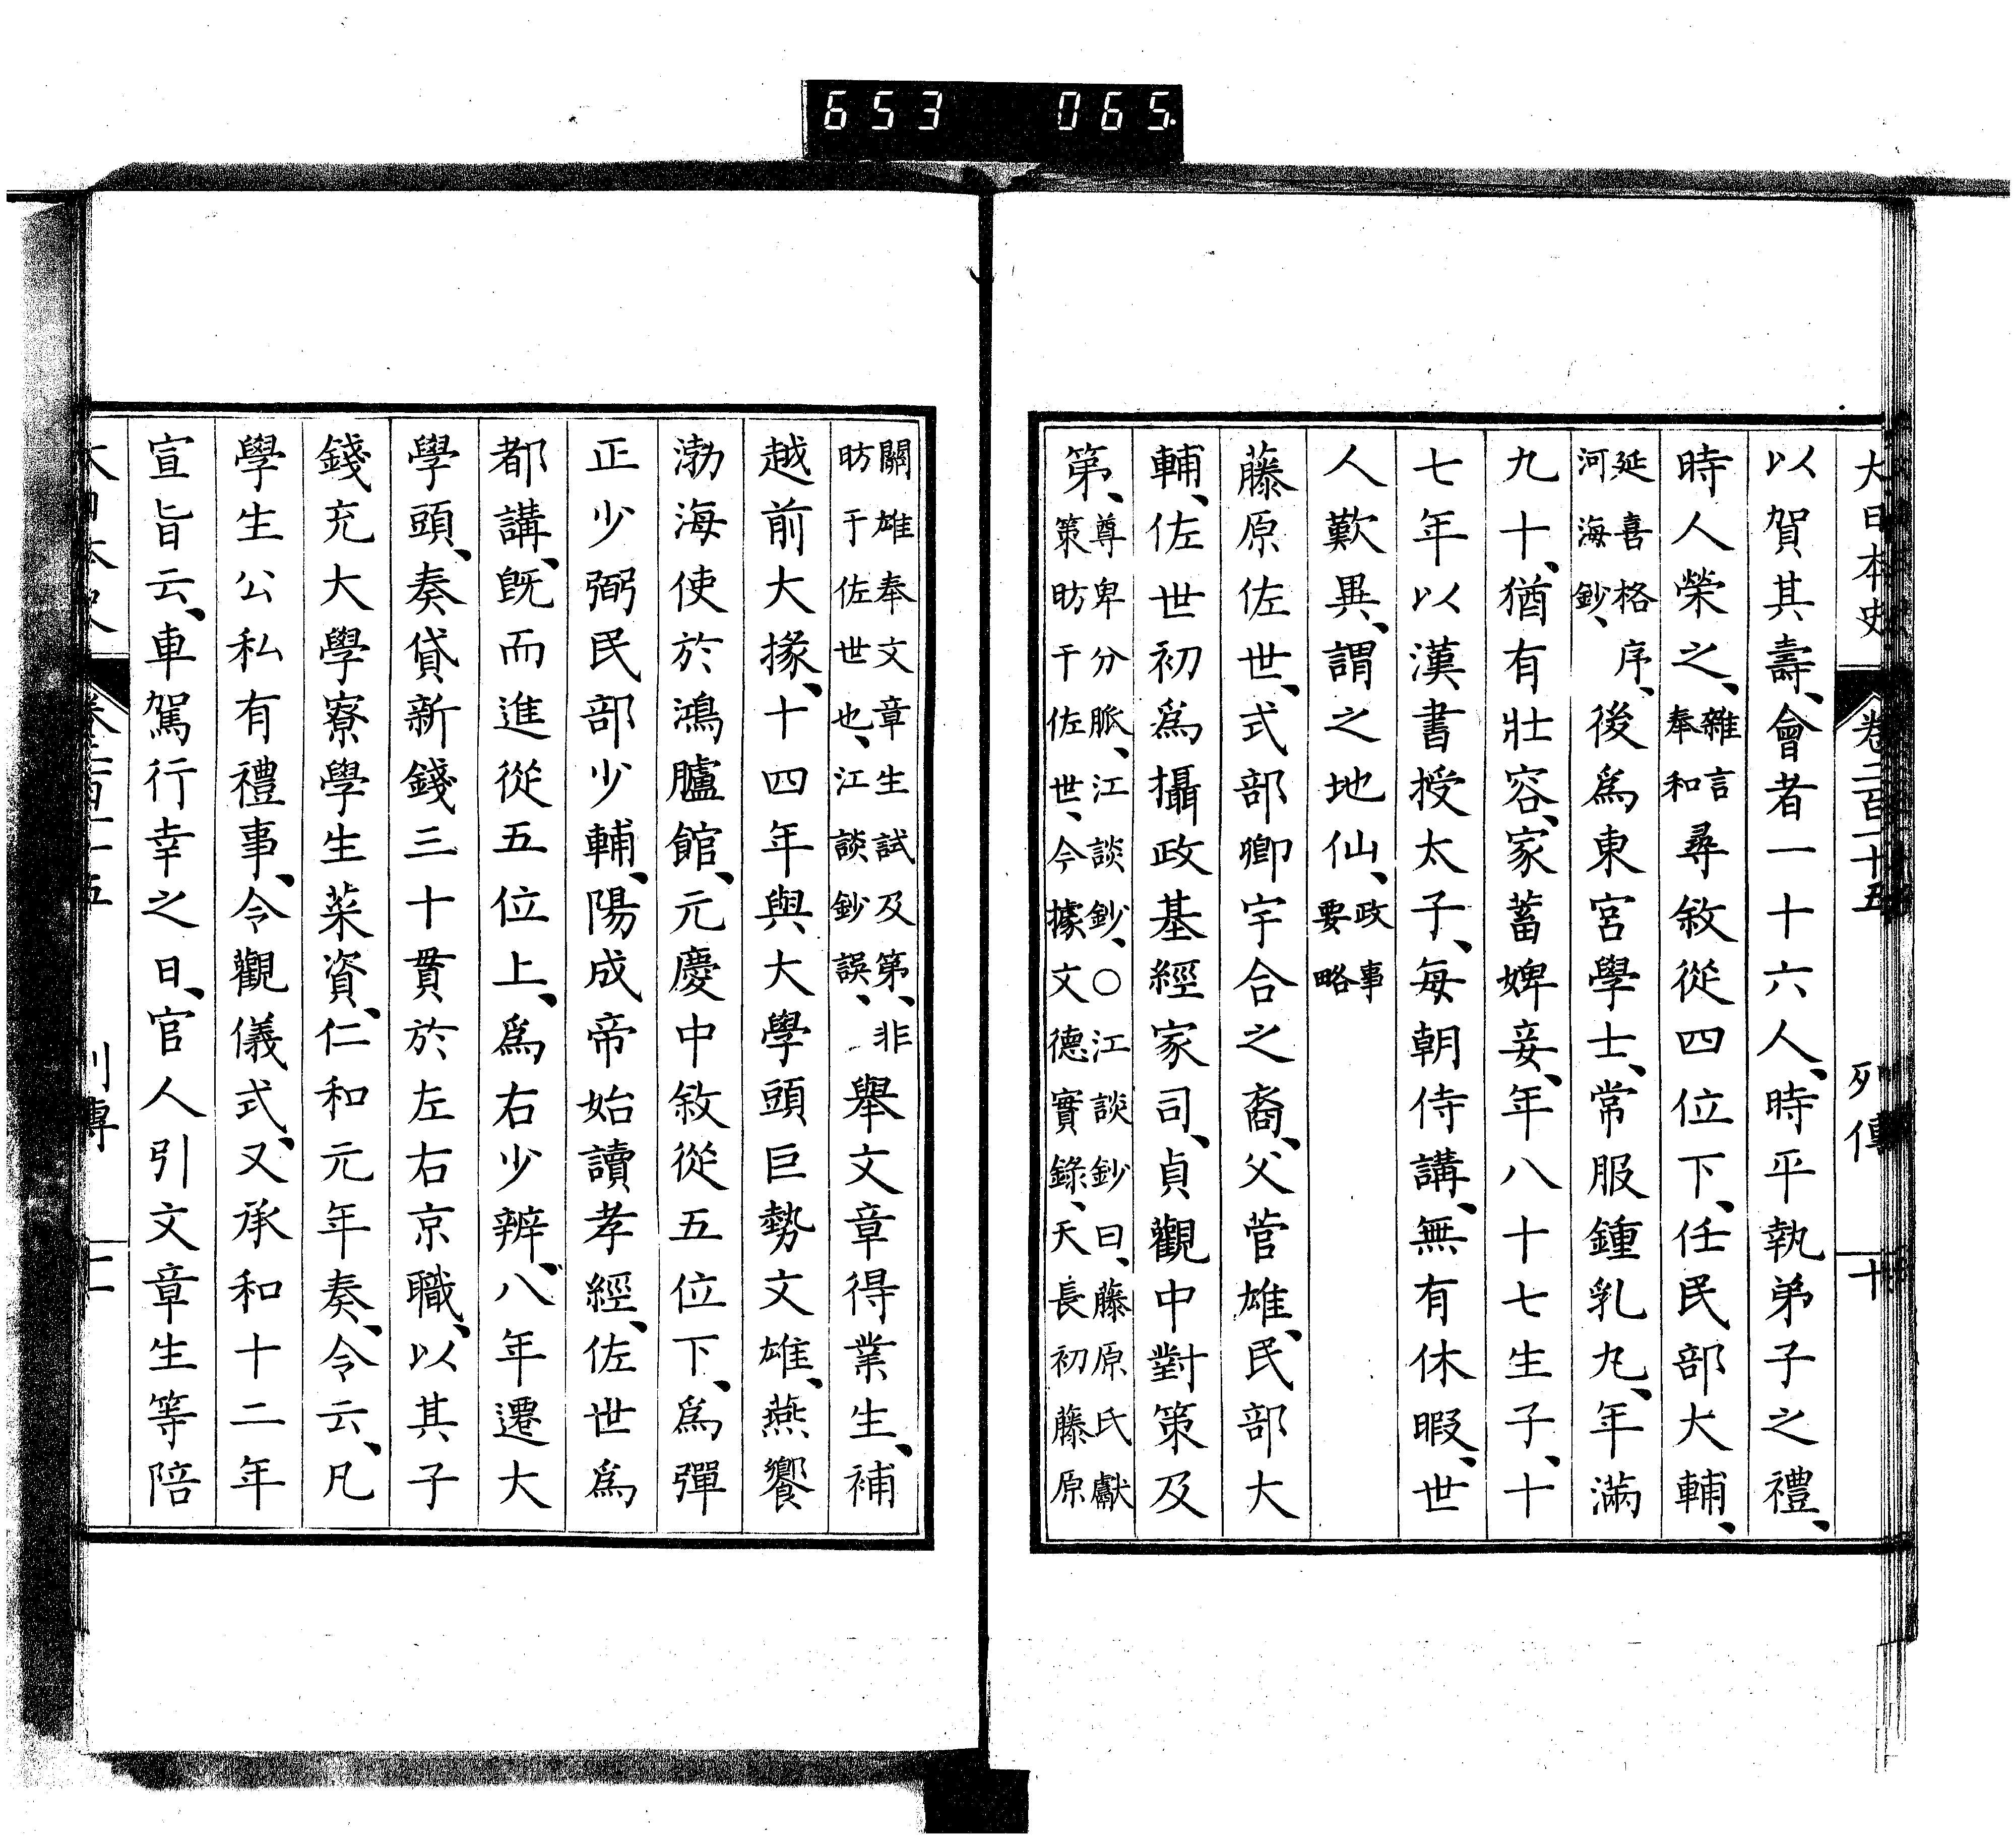 653 065
大日本史 卷二百十五 列傳 十
以賀其壽、會者一十六人、時平執弟子之禮、
時人榮之、雜言奉和尋敘從四位下、任民部大輔、
延喜格序、河海鈔、後爲東宮學士、常服鍾乳丸、年滿
九十、猶有壯容、家蓄婢妾、年八十七生子、十
七年以漢書授太子、每朝侍講、無有休暇、世
人歎異、謂之地仙、政事要略
藤原佐世、式部卿宇合之裔、父菅雄、民部大
輔、佐世初爲攝政基經家司、貞觀中對策及
第、尊卑分脈、江談鈔、○江談鈔曰、藤原氏獻策昉于佐世、今據文德實錄、天長初藤原
關雄奉文章生試及第、非昉于佐世也、江談鈔誤、舉文章得業生、補
越前大掾、十四年與大學頭巨勢文雄、燕饗
渤海使於鴻臚館、元慶中敘從五位下、爲彈
正少弼民部少輔、陽成帝始讀孝經、佐世爲
都講、旣而進從五位上、爲右少辨、八年遷大
學頭、奏貸新錢三十貫於左右京職、以其子
錢充大學寮學生菜資、仁和元年奏、令云、凡
學生公私有禮事、令觀儀式、又承和十二年
宣旨云、車駕行幸之日、官人引文章生等陪